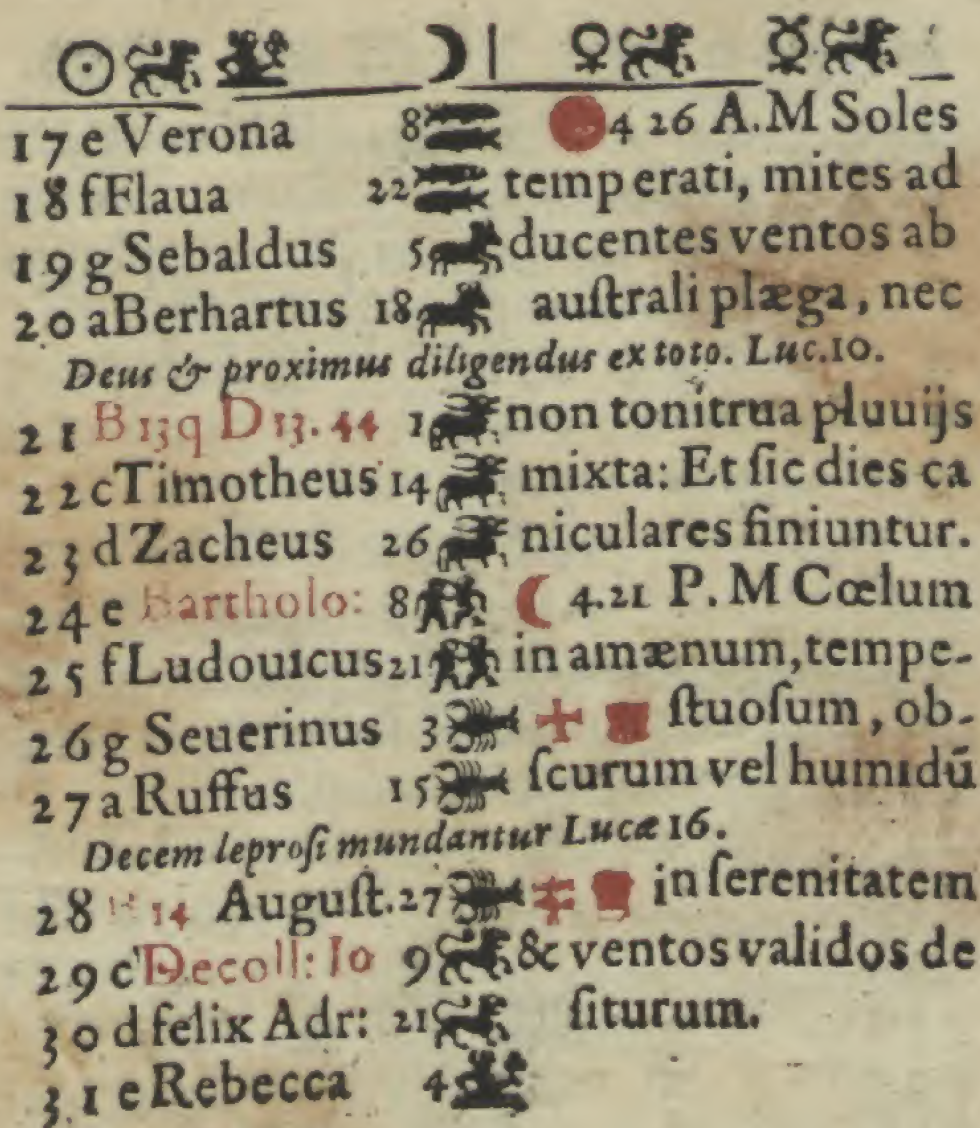 ☉♌♍ ☽ | ♀♌ ☿♌
17 e Verona 8 ♓ 4 26 A.M Soles
18 f Flaua 22 ♓ temperati, mites ad
19 g Sebaldus 5 ♈ ducentes ventos ab
20 a Berhartus 18 ♈ auſtrali plæga, nec
Deus & proximus diligendus ex toto. Luc.10.
21 B 13 q D 13. 44 1 ♉ non tonitrua pluuijs
22 c Timotheus 14 ♉ mixta: Et ſic dies ca
23 d Zacheus 26 ♉ niculares finiuntur.
24 e Bartholo: 8 ♊ ☾ 4.21 P. M Cœlum
25 f Ludouicus 21 ♊ in amænum, tempe-
26 g Seuerinus 3 ♋ ſtuoſum, ob-
27 a Ruffus 15 ♋ ſcurum vel humidū
Decem leproſi mundantur Lucæ 16.
28 14 Auguſt. 27 ♋ in ſerenitatem
29 c Decoll: Io 9 ♌ & ventos validos de
30 d felix Adr: 21 ♌ ſiturum.
31 e Rebecca 4 ♍